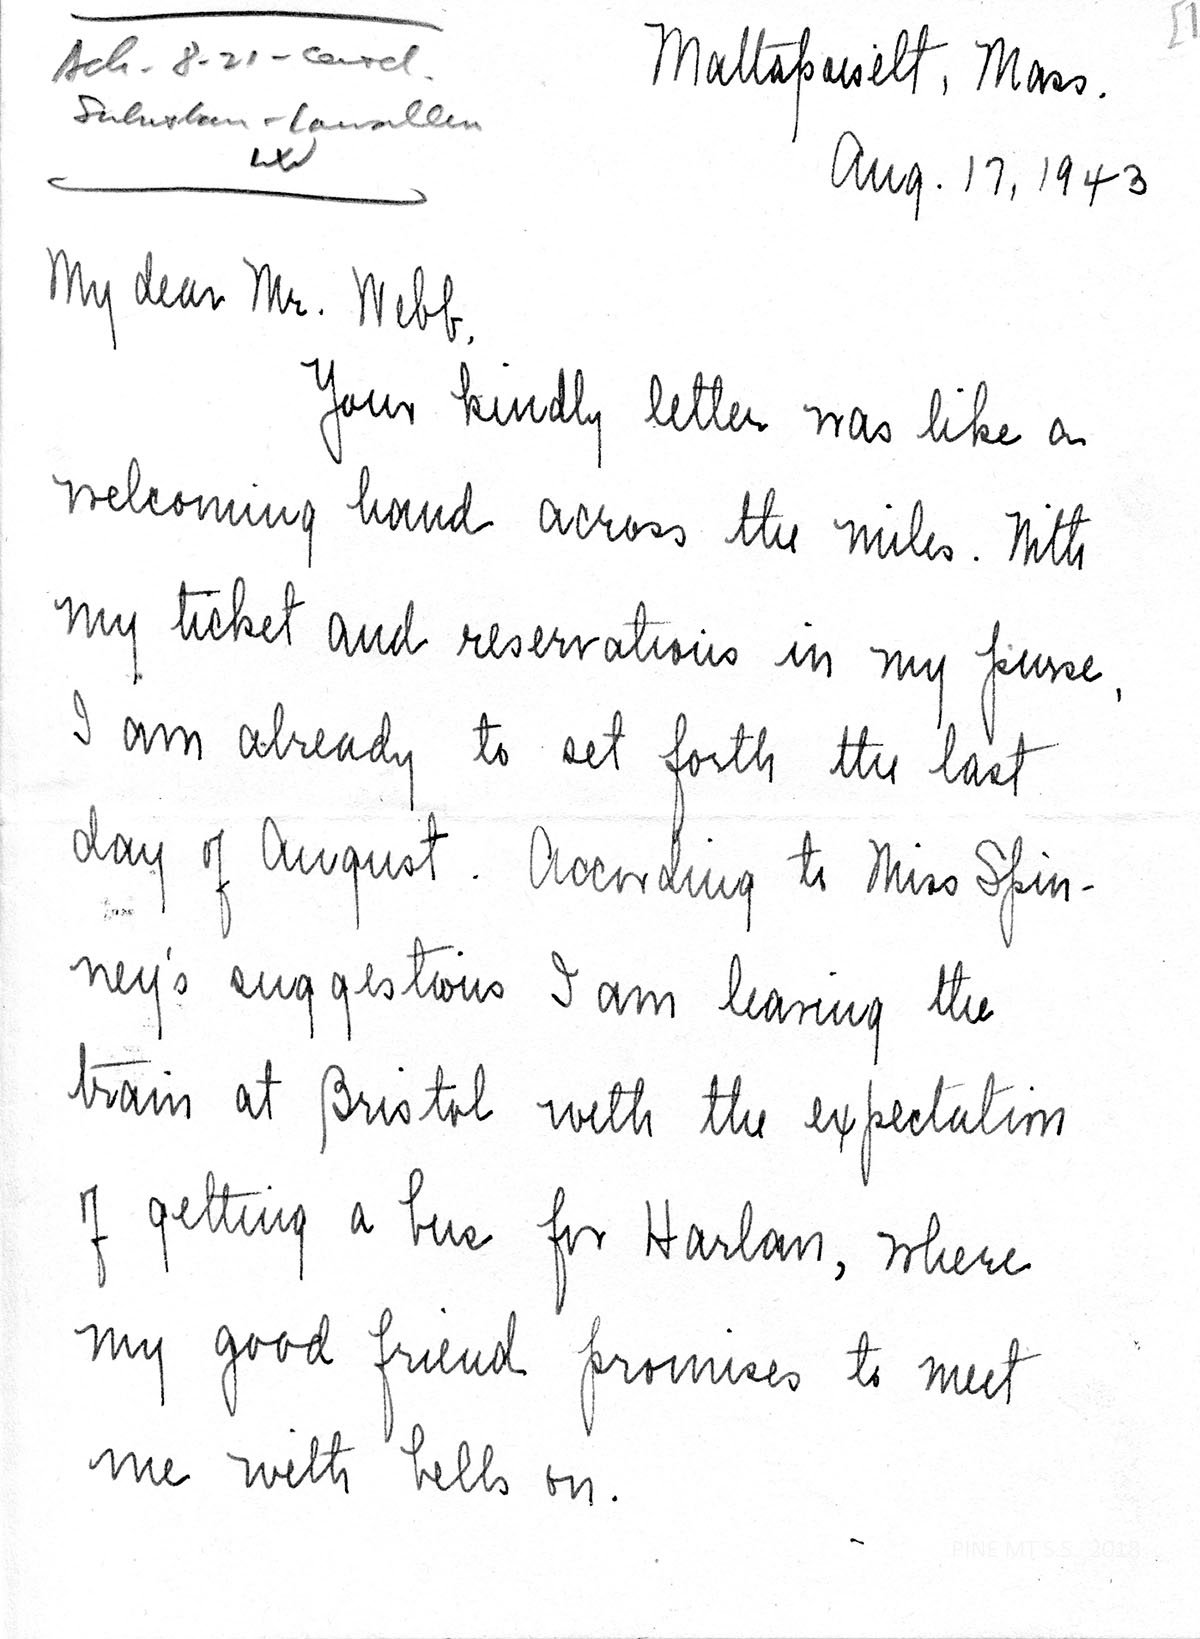 [1
Ack. 8-21-
Mattapoisett, Mass.
Aug. 17, 1943
My dear Mr. Webb,
Your kindly letter was like a
welcoming hand across the miles. With
my ticket and reservations in my purse,
I am already to set forth the last
day of August. According to Miss Spin-
ney's suggestions I am leaving the
train at Bristol with the expectation
of getting a bus for Harlan, where
my good friend promises to meet
me with bells on.
PINE MT S.S. 2018